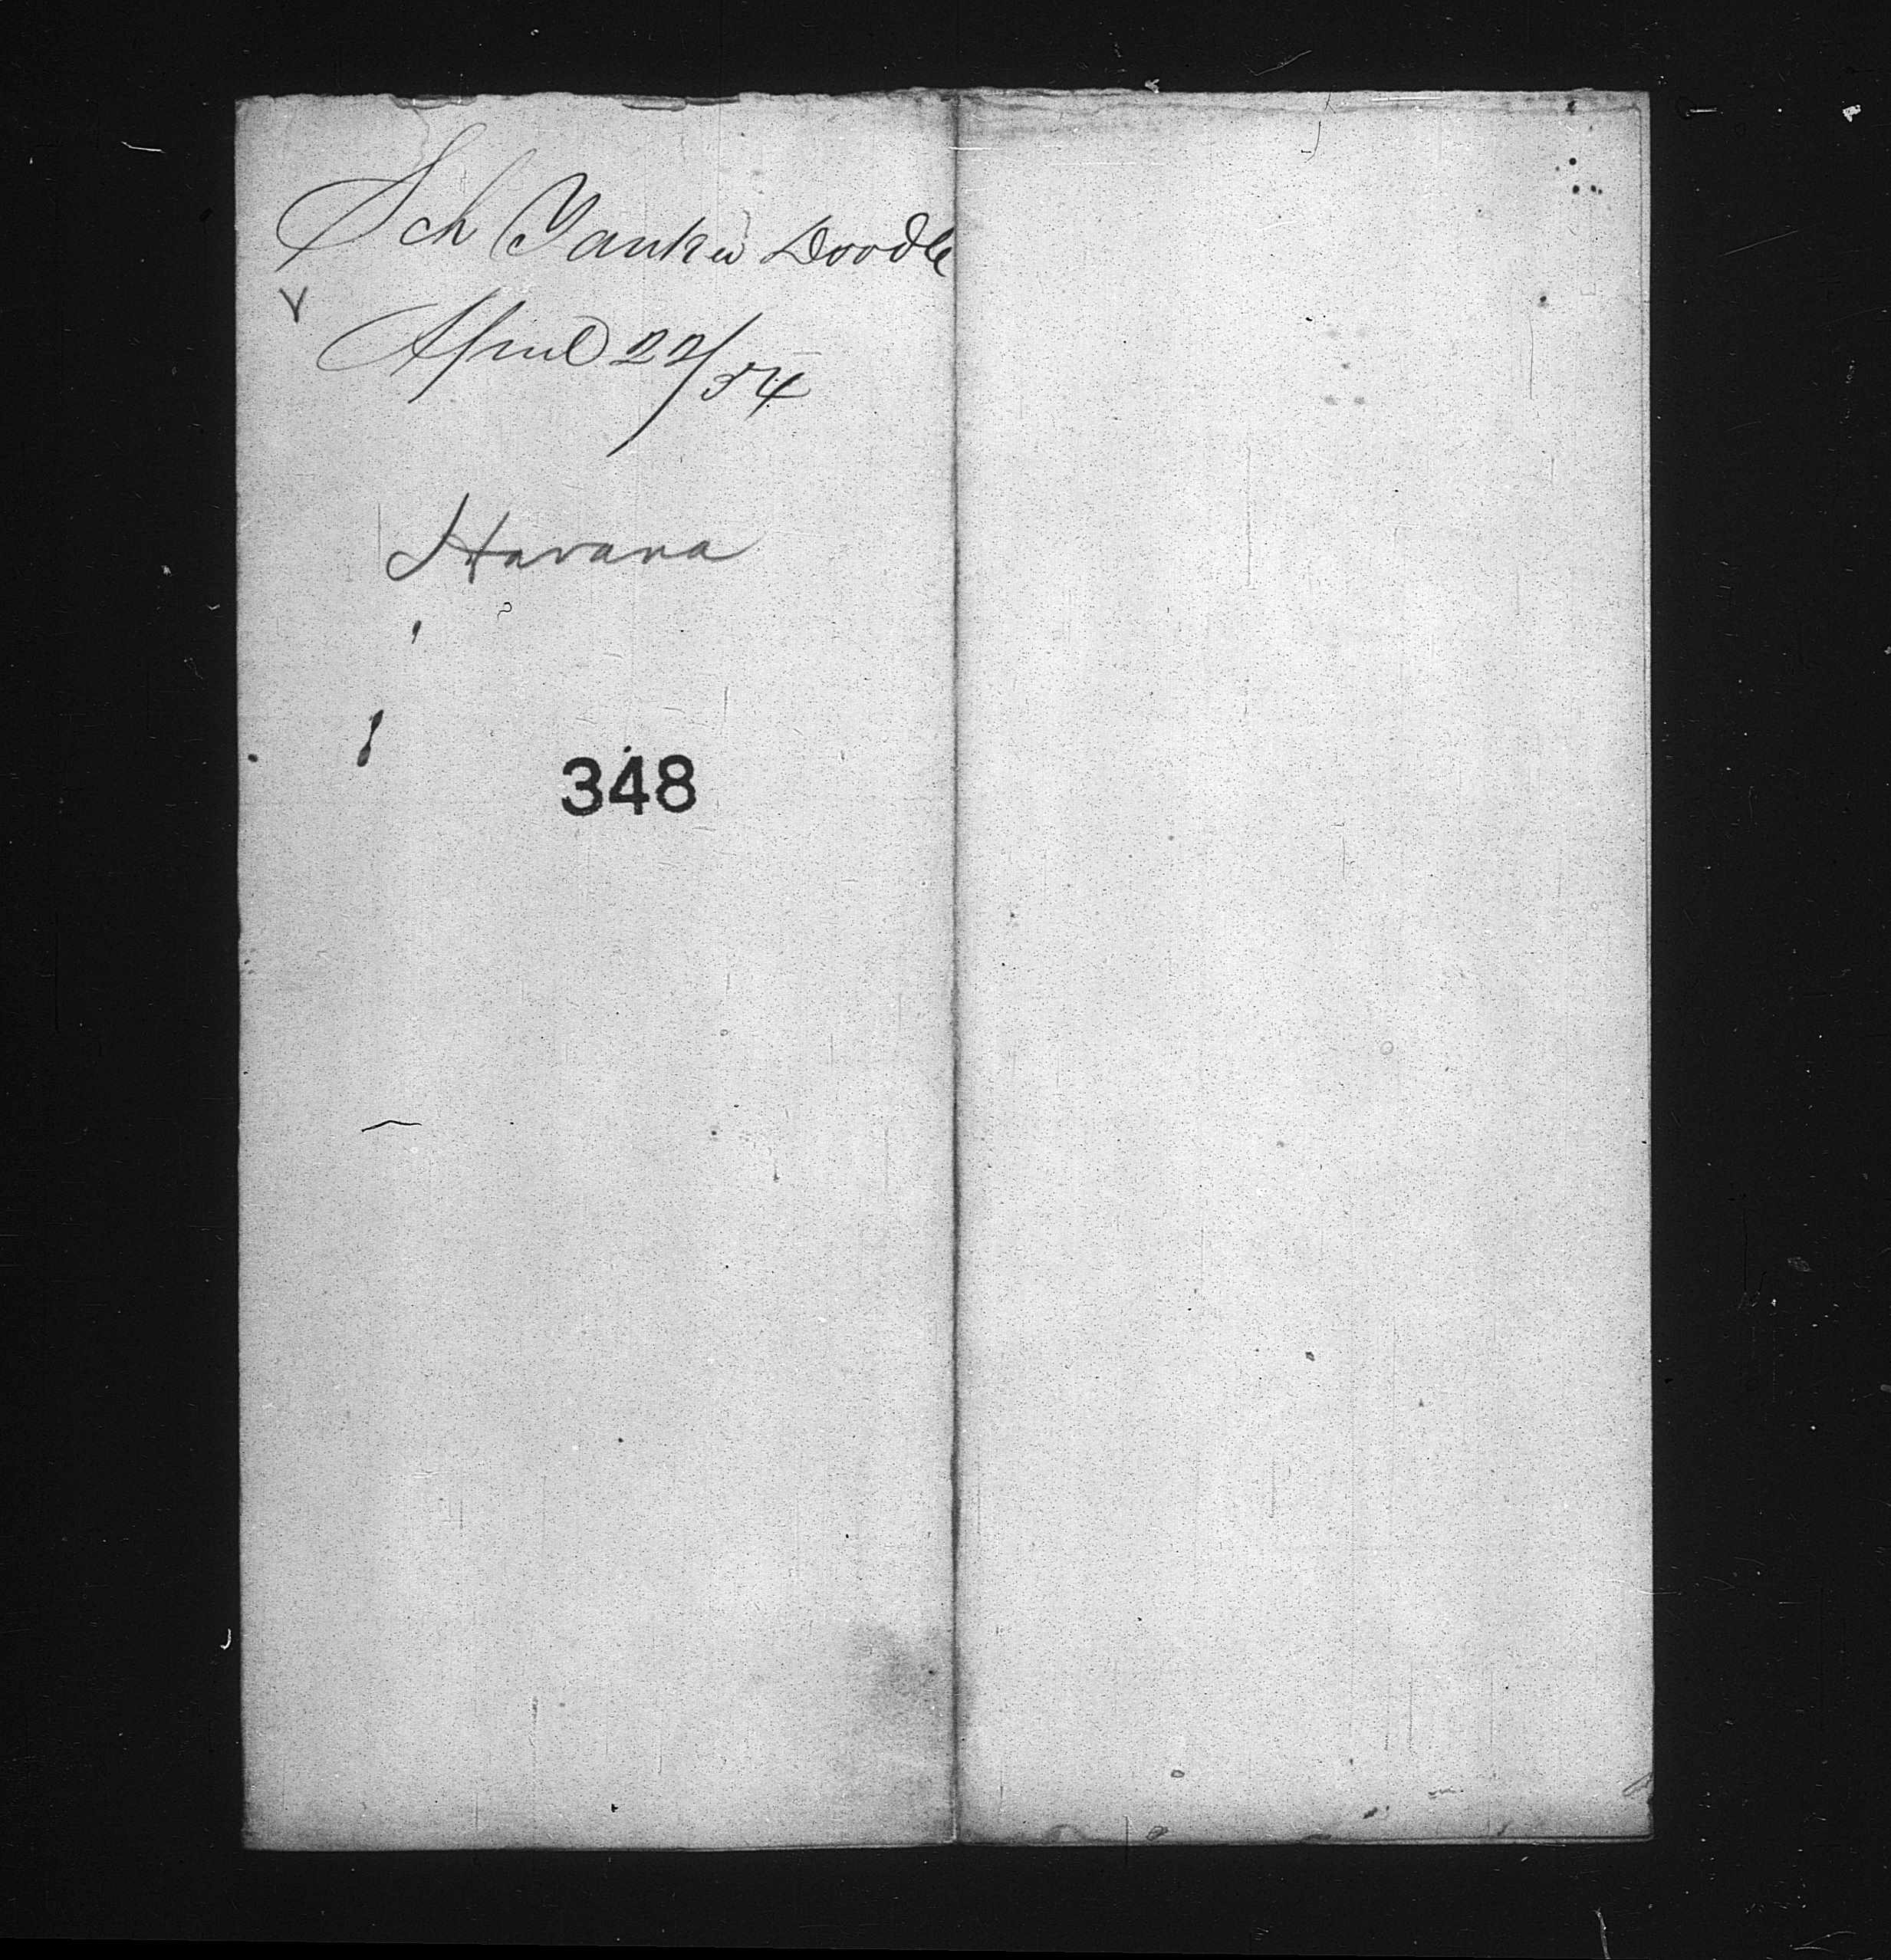 Sch Yankee Doodle
April 22/54
Havana
348